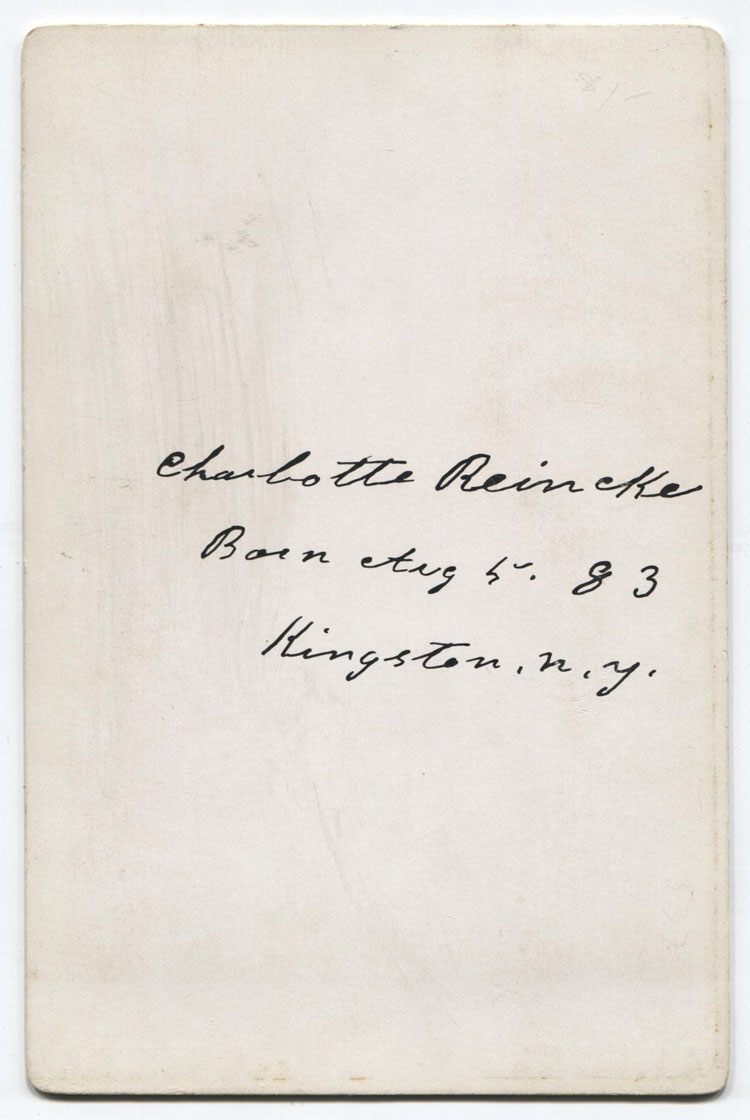 Charlotte Reincke
Born Aug 5. 83
Kingston, N, Y.